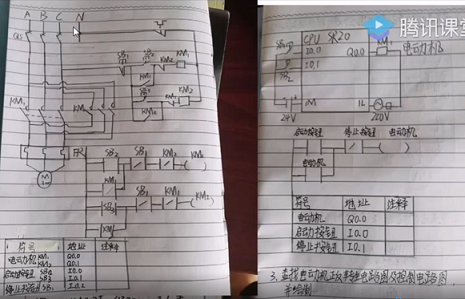 腾讯课堂
A B C N
QS
KM₁
KM₂
FR
M
SB₂
KM₁
SB₁
KM₂
符号
地址
注释
电动机 KM₁
Q0.0
KM₂
Q0.1
启动按钮 SB₂
I0.0
SB₃
I0.1
停止按钮 SB₁
I0.2
CPU SR20
I0.0
I0.1
Q0.0
KM₁
电动机
SB₂
M
1L
24V
220V
启动按钮
停止按钮
电动机
电动机
符号
地址
注释
电动机
Q0.0
启动按钮
I0.0
停止按钮
I0.1
3. 查找电动机正反转主电路图及控制电路图
并绘制